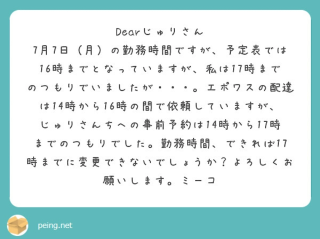 Dearじゅりさん
7月7日（月）の勤務時間ですが、予定表では
16時までとなっていますが、私は17時まで
のつもりでいましたが・・・。エポワスの配達
は14時から16時の間で依頼していますが、
じゅりさんちへの事前予約は14時から17時
までのつもりでした。勤務時間、できれば17
時までに変更できないでしょうか？よろしくお
願いします。ミーコ
peing.net